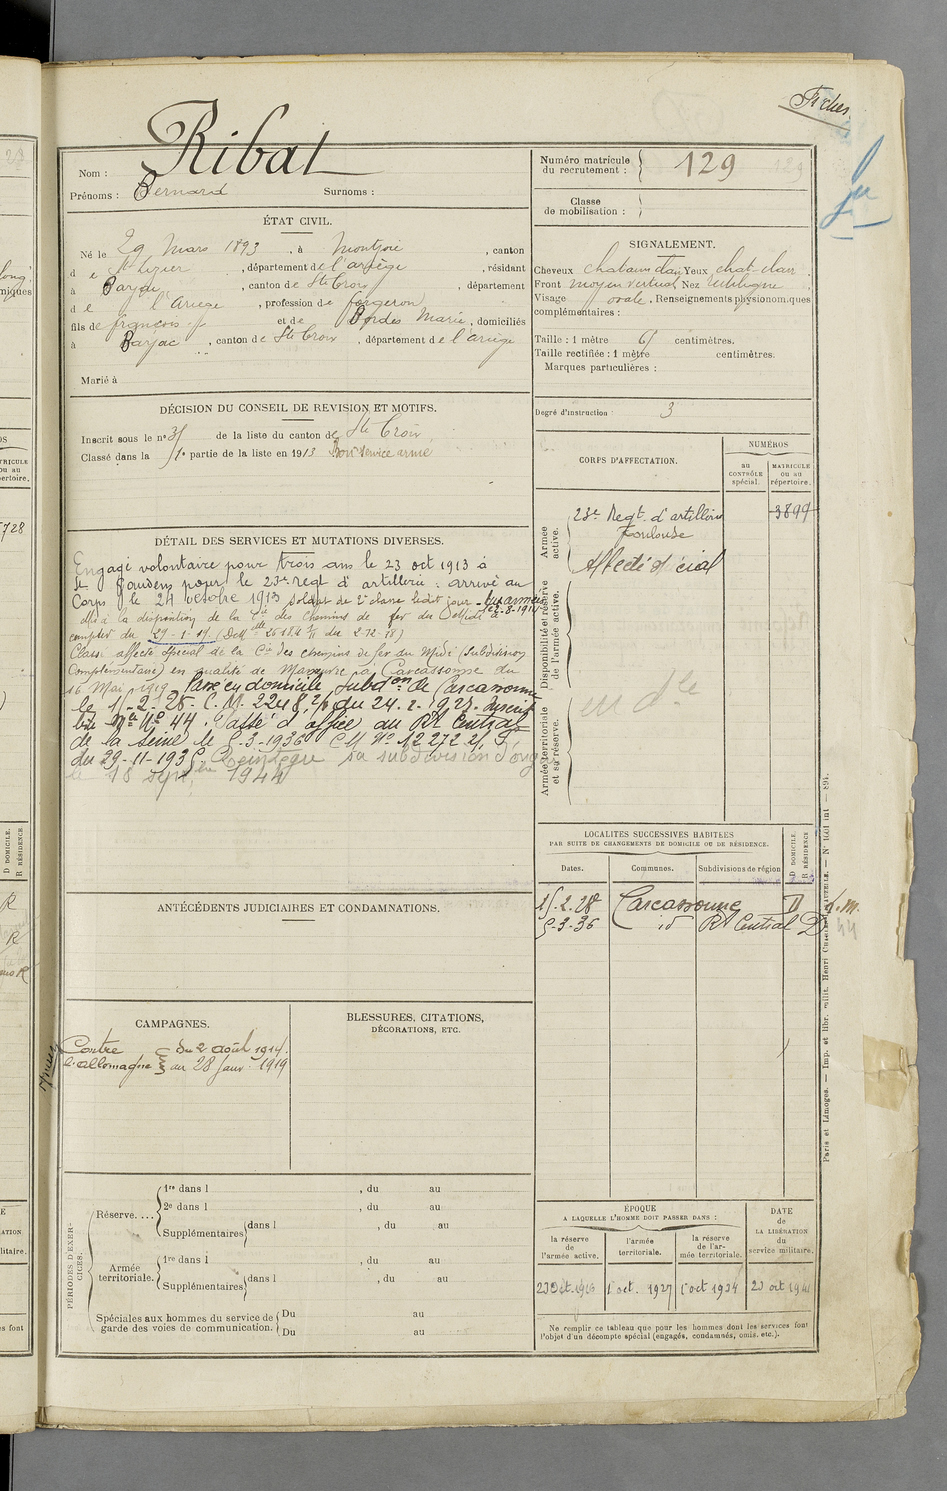 Fiches
Ribat
Nom :
Prénoms : Bernard Surnoms :
Numéro matricule
du recrutement : 129
Classe
de mobilisation :
ÉTAT CIVIL.
Né le 29 Mars 1893, à Montjoie, canton
de St Lizier, département de l'ariège, résidant
à Barjac, canton de Ste Croix, département
de l'Ariège, profession de forgeron
fils de françois et de Bordes Marie, domiciliés
à Barjac, canton de Ste Croix, département de l'ariège
Marié à
SIGNALEMENT.
Cheveux chatain clair Yeux chat-clair
Front moyen vertical Nez rectiligne
Visage ovale. Renseignements physionomiques
complémentaires :
Taille : 1 mètre 65 centimètres.
Taille rectifiée : 1 mètre centimètres.
Marques particulières :
Degré d'instruction : 3
DÉCISION DU CONSEIL DE REVISION ET MOTIFS.
Inscrit sous le n° 35 de la liste du canton de Ste Croix
Classé dans la 1e partie de la liste en 1913 Bon service armé
CORPS D'AFFECTATION.
NUMÉROS
au
CONTRÔLE
spécial.
MATRICULE
ou au
répertoire.
Armée
active.
23e Regt. d'artillerie 3899
Toulouse
Affecté spécial
Disponibilité et réserve
de l'armée active.
Armée territoriale
et sa réserve.
en dle
DÉTAIL DES SERVICES ET MUTATIONS DIVERSES.
Engagé volontaire pour trois ans le 23 oct 1913 à
St Gaudens pour le 23e regt d'artillerie : arrivé au
Corps le 24 octobre 1913 soldat de 2e classe ledit jour - aux armées
le 2-8-1914
Mis à la disposition de la Cie des Chemins de fer du Midi à
compter du 29-1-19 (Don 26184 du 2-12-18)
Classé affecté spécial de la Cie des chemins de fer du Midi (Subdivision
Complémentaire) en qualité de Manœuvre à Carcassonne du
16 Mai 1919 Passé en domicile Subdon de Carcassonne
le 15-2-28- C.M. 2248 2/6 du 24.2.1927. Inscrit
N° 44. Passé d'office au Rt Central
de la Seine le 5-3-1936 CM N° 12272
du 29-11-1935. Réintègre sa subdivision d'origine
le 18 septembre 1944
ANTÉCÉDENTS JUDICIAIRES ET CONDAMNATIONS.
LOCALITES SUCCESSIVES HABITÉES
PAR SUITE DE CHANGEMENTS DE DOMICILE OU DE RÉSIDENCE.
Dates. Communes. Subdivisions de région
D DOMICILE.
R RÉSIDENCE
15.2.28 Carcassonne D
5-3-36 id Rt Central D
44
CAMPAGNES.
Contre
l'allemagne
du 2 août 1914.
au 28 janv. 1919
BLESSURES, CITATIONS,
DÉCORATIONS, ETC.
PÉRIODES D'EXERCICES.
Réserve....
1re dans l , du au
2e dans l , du au
Supplémentaires dans l , du au
Armée
territoriale.
1re dans l , du au
Supplémentaires dans l , du au
Spéciales aux hommes du service de
garde des voies de communication.
Du au
Du au
ÉPOQUE
A LAQUELLE L'HOMME DOIT PASSER DANS :
la réserve
de
l'armée active.
l'armée
territoriale.
la réserve
de l'ar-
mée territoriale.
DATE
de
LA LIBÉRATION
du
service militaire.
23 Oct. 1916 1 oct. 1927 1 oct 1934 23 oct 1941
Ne remplir ce tableau que pour les hommes dont les services font
l'objet d'un décompte spécial (engagés, condamnés, omis, etc.).